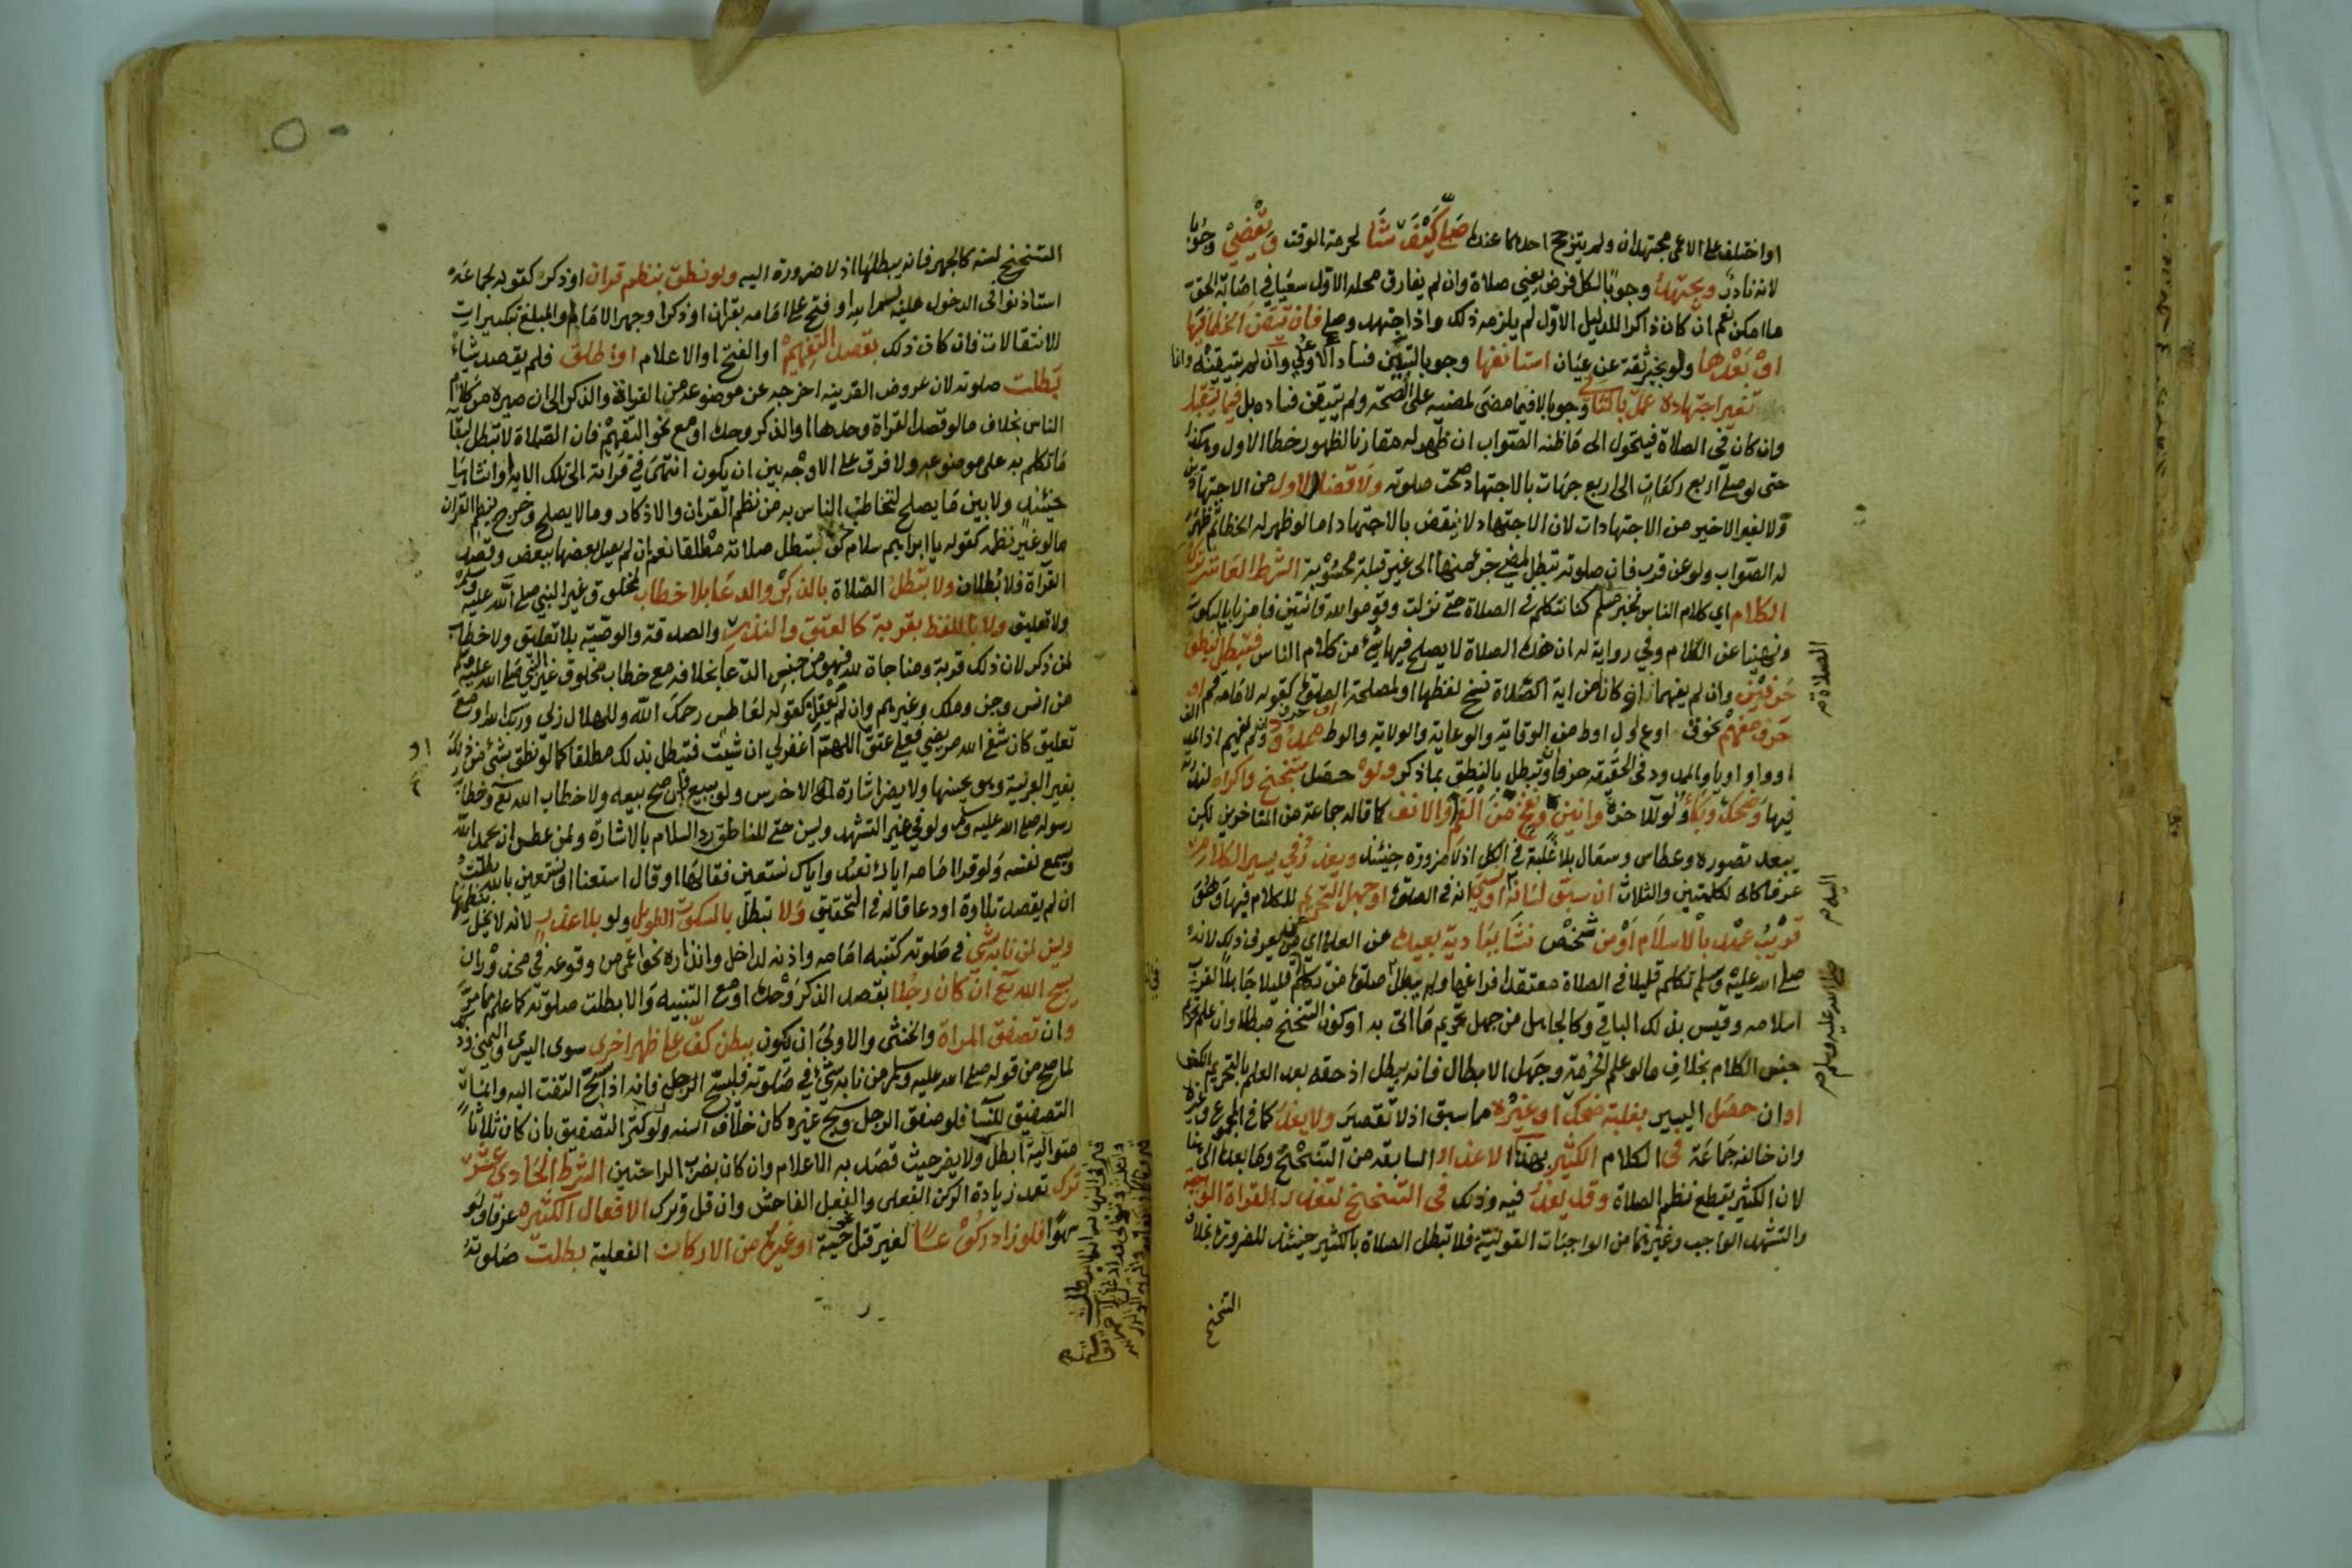 او اختلف على الاعمى مجتهدان ولم يترجح احدهما عنده صلى كيف شا لحرمة الوقت ويقضي وجوبا
لانه نادر ويجتهد وجوبا لكل فرض يعني صلاة وان لم يفارق محله الاول سعيا في اصابة الحق
ما امكن نعم ان كان ذاكرا للدليل الاول لم يلزمه ذلك واذا اجتهد وصلى فان تيقن الخطا فيها
او بعدها ولو بخبر ثقة عن عيان استانفها وجوبا لتبين فساد الاولى وان لم يتيقنه وانما
تغير اجتهاده عمل بالثاني وجوبا لا فيما مضى لمضيه على الصحة ولم يتيقن فساده بل فيما يستقبل
وان كان في الصلاة فيتحول الى ما ظنه الصواب ان ظهر له مقارنا لظهور خطا الاول وهكذا
حتى لو صلى اربع ركعات الى اربع جهات بالاجتهاد صحت صلوته ولا قضا للاول من الاجتهادين
ولا لغير الاخير من الاجتهادات لان الاجتهاد لا ينقض بالاجتهاد اما لو ظهر له الخطا ثم ظهر
له الصواب ولو عن قرب فان صلوته تبطل لمضي جزء منها الى غير قبلة محسوبة الشرط العاشر ترك
الكلام اي كلام الناس لخبر مسلم كنا نتكلم في الصلاة حتى نزلت وقوموا لله قانتين فامرنا بالسكوت
ونهينا عن الكلام وفي رواية له ان هذه الصلاة لا يصلح فيها شئ من كلام الناس فتبطل بنطق
حرفين وان لم يفهما او كانا من اية نسخ لفظها او لمصلحة الصلوة كقوله لامامه قم او
حرف مفهم نحو ق او ع او ل او ط من الوقاية والوعاية والولاية والوط او حرف ممدود وان لم يفهم اذ المد الف
او واو او يا والممدود في الحقيقة حرفان وتبطل بالنطق بما ذكر ولو حصل بتنحنح واكراه لندرته
فيها وضحك وبكاء ولو للاخرة وانين ونفخ من الفم او الانف كما قاله جماعة من المتاخرين لكن
يبعد تصوره وعطاس وسعال بلا غلبة في الكل اذ لا ضرورة حينئذ ويعذر في يسير الكلام
عرفا كالكلمتين والثلاث ان سبق لسانه او نسي انه في الصلوة او جهل التحريم للكلام فيها وهو
قريب عهد بالاسلام او من نشا ببادية بعيدة عن العلماء اي عمن يعرف ذلك لانه
صلى الله عليه وسلم تكلم قليلا في الصلاة معتقدا فراغها ولم يبطل صلوة من تكلم قليلا جاهلا لقرب
اسلامه وقيس بذلك الباقي وكالجاهل من جهل تحريم ما اتى به او كون التنحنح مبطلا وان علم تحريم
جنس الكلام بخلاف ما لو علم الحرمة وجهل الابطال فانه يبطل اذ حقه بعد العلم بالتحريم الكف
او ان حصل اليسير بغلبة ضحك او غيره مما سبق اذ لا تقصير ولا يعذر كما في المجموع وغيره
وان خالفه جماعة في الكلام الكثير بهذه الاعذار السابقة من التنحنح وما بعده الى هنا
لان الكثير يقطع نظم الصلاة وقد يعذر فيه وذلك في التنحنح لتعذر القراة الواجبة
والتشهد الواجب وغيرهما من الواجبات القولية فلا تبطل الصلاة بالكثير حينئذ للضرورة بخلاف
التنحنح
الصلاة
صلى الله عليه وسلم
التنحنح لسنة كالجهر فانه يبطلها اذ لا ضرورة اليه ولو نطق بنظم قران او ذكر كقوله لجماعة
استاذنوا في الدخول عليه بسم الله او فتح على امامه بقران او ذكر او جهر الامام او المبلغ بتكبيرات
الانتقالات فان كان ذلك بقصد التفهيم او الفتح او الاعلام او اطلق فلم يقصد شيئا
بطلت صلوته لان عروض القرينة اخرجه عن موضوعه من القراة والذكر الى ان صيره من كلام
الناس بخلاف ما لو قصد القراة وحدها او الذكر وحده او مع نحو التفهيم فان الصلاة لا تبطل لبقا
ما تكلم به على موضوعه ولا فرق على الاوجه بين ان يكون انتهى في قراته الى تلك الاية او انشاها
حينئذ ولا بين ما يصلح لتخاطب الناس به من نظم القران والاذكار وما لا يصلح وخرج بنظم القران
ما لو غير نظمه كقوله يا ابراهيم سلام كن فتبطل صلاته مطلقا نعم ان لم يصل بعضها ببعض وقصد
القراة فلا بطلان ولا تبطل الصلاة بالذكر والدعا بلا خطاب لمخلوق غير النبي صلى الله عليه وسلم
ولا تعليق ولا بالتلفظ بقربة كالعتق والنذر والصدقة والوصية بلا تعليق ولا خطاب
لمن ذكر لان ذلك قربة ومناجاة لله فهو من جنس الدعا بخلافه مع خطاب مخلوق غير النبي صلى الله عليه وسلم
من انس وجن وملك وغيرهم وان لم يعقل كقوله لعاطس رحمك الله وللهلال ربي وربك الله او مع
تعليق كان شفى الله مريضي فعلي عتق او اللهم اغفر لي ان شئت فتبطل بذلك مطلقا كما لو نطق بشئ من ذلك
بغير العربية وهو يحسنها ولا يضر اشارة الاخرس ولو ببيع وان صح بيعه ولا خطاب الله تعالى وخطاب
رسوله صلى الله عليه وسلم ولو في غير التشهد ويسن حتى للناطق رد السلام بالاشارة ولمن عطس ان يحمد الله
ويسمع نفسه ولو قرا امامه اياك نعبد واياك نستعين فقالها او قال استعنا او نستعين بالله بطلت
ان لم يقصد تلاوة او دعا قاله في التحقيق ولا تبطل بالسكوت الطويل ولو بلا عذر لانه لا يخل بنظمها
ويسن لمن نابه شئ في صلوته كتنبيه امامه واذنه لداخل وانذاره نحو اعمى من وقوعه في محذور ان
يسبح الله تعالى ان كان رجلا بقصد الذكر وحده او مع التنبيه والا بطلت صلوته كما علم مما مر
وان تصفق المراة والخنثى والاولى ان يكون ببطن كف على ظهر اخرى سوى اليسرى واليمنى وذلك
لما صح من قوله صلى الله عليه وسلم من نابه شئ في صلوته فليسبح الرجل فانه اذا سبح التفت اليه وانما
التصفيق للنسا فلو صفق الرجل وسبح غيره كان خلاف السنة ولو كثر التصفيق بان كان ثلاثا
متوالية ابطل ولا يضر حيث قصد به الاعلام وان كان بضرب الراحتين الشرط الحادي عشر
ترك تعمد زيادة الركن الفعلي والفعل الفاحش وان قل وترك الافعال الكثيرة عرفا ولو
سهوا فلو زاد ركوعا لغير قتل حية او غيره من الاركان الفعلية بطلت صلوته